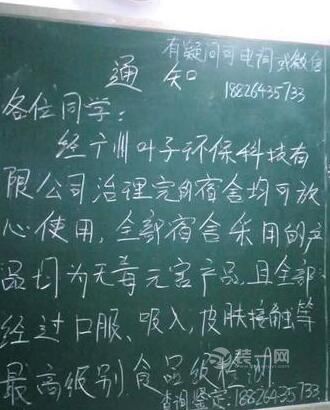 有疑问可电询或微信
18826435733
通知
各位同学：
经广州叶子环保科技有
限公司治理完的宿舍均可放
心使用，全部宿舍采用的产
品均为无毒无害产品，且全部
经过口服、吸入，皮肤接触等
最高级别食品级检测
查询鉴定：18826435733
装一网